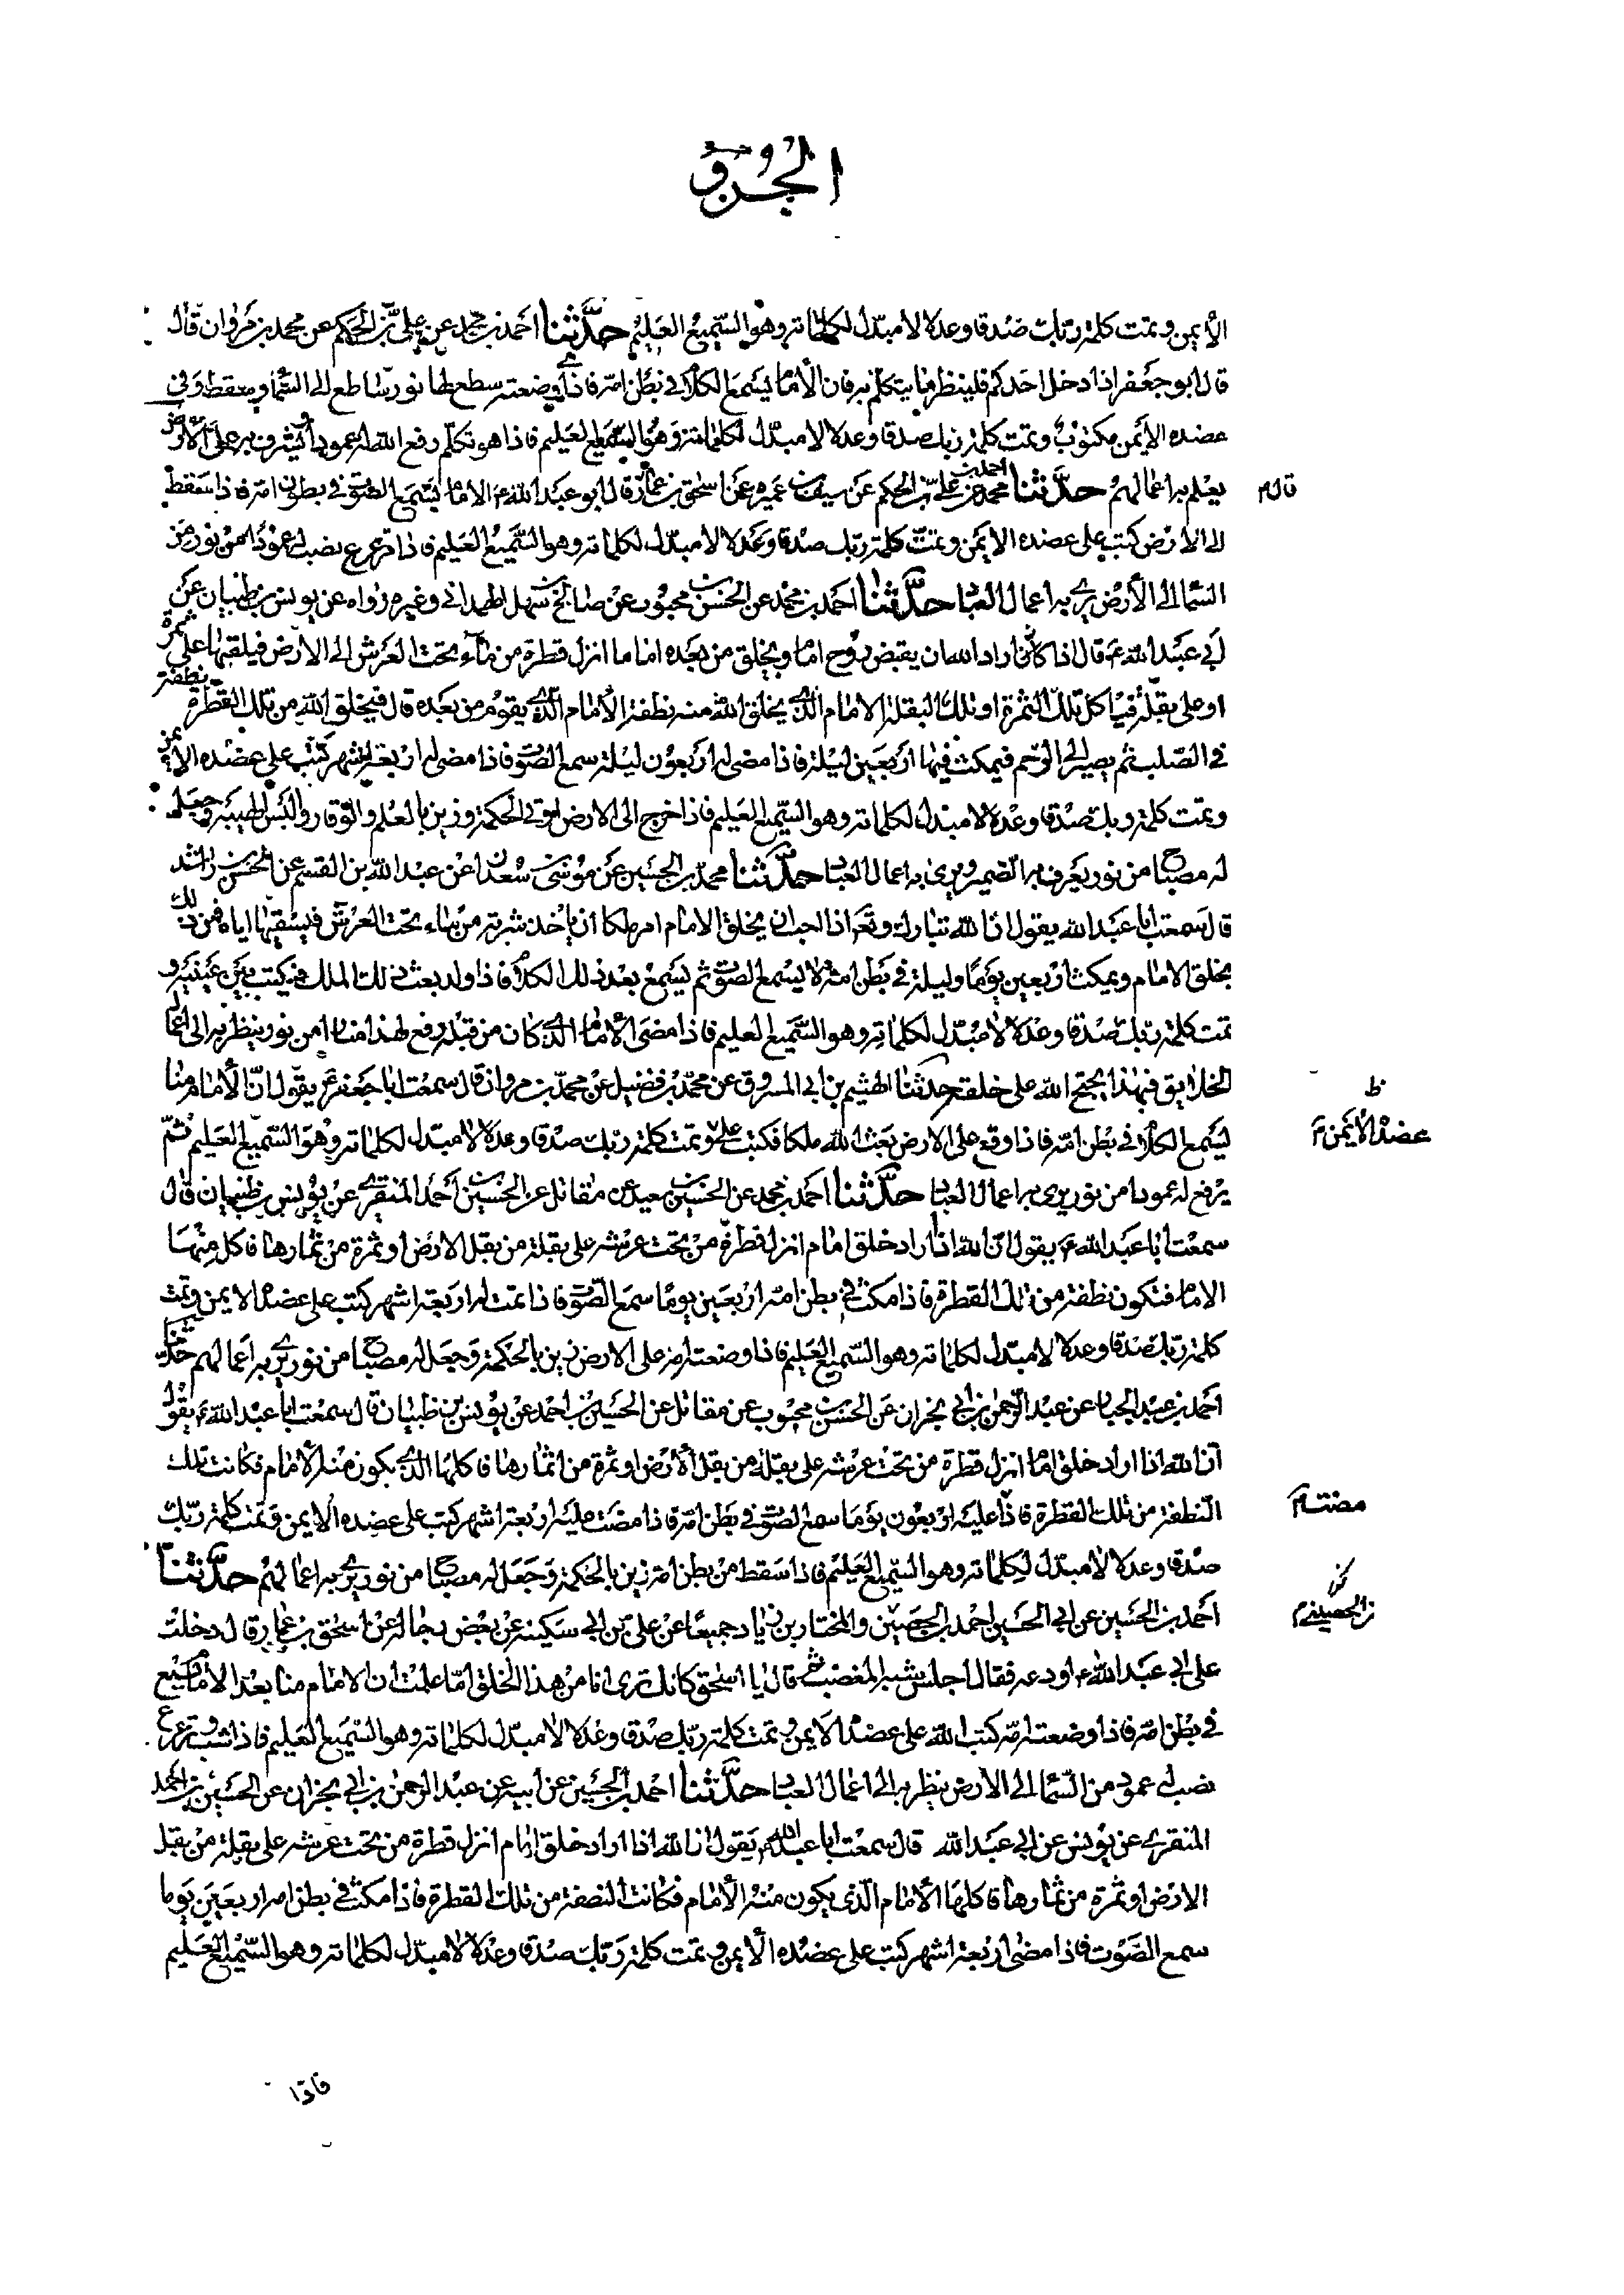 الجزو
الأيمن وتمت كلمة ربك صدقا وعدلا لا مبدل لكلماته وهو السميع العليم حدثنا احمد بن محمد عن علي بن الحكم عن محمد بن مروان قال
قال ابو جعفر اذا دخل احدكم فلينظر ما يتكلم به فان الأمام يسمع الكلام في بطن امه فاذا وضعته سطع لها نور ساطع الى السماء وسقط وفي
عضده الايمن مكتوب وتمت كلمة ربك صدقا وعدلا لا مبدل لكلماته وهو السميع العليم فاذا هو تكلم رفع الله له عمودا يشرف به على الأرض
يعلم به اعمالهم حدثنا محمد بن علي بن الحكم عن سيف بن عميره عن اسحق بن عمار قال ابو عبد الله ع الامام يسمع الصوت في بطن امه فاذا سقط
قال م
الى الارض كتب على عضده الايمن وتمت كلمة ربك صدقا وعدلا لا مبدل لكلماته وهو السميع العليم فاذا ترعرع نصب له عمودا من نور من
السماء الى الأرض يرى به اعمال العباد حدثنا احمد بن محمد عن الحسن بن محبوب عن صالح بن سهل الهمداني وغيره رواه عن يونس بن ظبيان عن
ابي عبد الله ع قال اذا اراد الله ان يقبض روح امام ويخلق من بعده اماما انزل قطرة من ماء تحت العرش الى الارض فيلقيها على ثمرة
او على بقلة فياكل تلك الثمرة او تلك البقلة الامام الذي يخلق الله منه نطفة الأمام الذي يقوم من بعده قال فيخلق الله من تلك القطرة نطفة
في الصلب ثم يصير الى الرحم فيمكث فيها اربعين ليلة فاذا مضى له اربعون ليلة سمع الصوت فاذا مضى له اربعة اشهر كتب على عضده الايمن
وتمت كلمة ربك صدقا وعدلا لا مبدل لكلماته وهو السميع العليم فاذا خرج الى الارض اوتي الحكمة وزين بالعلم والوقار والبس الهيبة وجعل
له مصباح من نور يعرف به الضمير ويرى به اعمال العباد حدثنا محمد بن الحسين عن موسى بن سعدان عن عبد الله بن القسم عن الحسن بن راشد
قال سمعت ابا عبد الله يقول ان الله تبارك وتعالى اذا احب ان يخلق الامام امر ملكا ان ياخذ شربة من ماء تحت العرش فيسقيها اياه فمن ذلك
يخلق الامام ويمكث اربعين يوما وليلة في بطن امه لا يسمع الصوت ثم يسمع بعد ذلك الكلام فاذا ولد بعث ذلك الملك فيكتب بين عينيه و
تمت كلمة ربك صدقا وعدلا لا مبدل لكلماته وهو السميع العليم فاذا مضى الأمام الذي كان من قبله رفع لهذا منارا من نور ينظر به الى اعمال
الخلايق فبهذا يحتج الله على خلقه حدثنا الهيثم بن ابي المسروق عن محمد بن فضيل عن محمد بن مروان قال سمعت ابا جعفر ع يقول ان الأمام منا
يسمع الكلام في بطن امه فاذا وقع على الارض بعث الله ملكا فكتب على وتمت كلمة ربك صدقا وعدلا لا مبدل لكلماته وهو السميع العليم ثم
ظ
عضده الأيمن م
يرفع له عمودا من نور يرى به اعمال العباد حدثنا احمد بن محمد عن الحسين بن سعيد عن مقاتل عن الحسين بن احمد المنقري عن يونس بن ظبيان قال
سمعت ابا عبد الله ع يقول ان الله اذا اراد خلق امام انزل قطرة من تحت عرشه على بقلة من بقل الارض او ثمرة من ثمارها فاكل منها
الامام فتكون نطفة من تلك القطرة فاذا مكث في بطن امه اربعين يوما سمع الصوت فاذا تمت له اربعة اشهر كتب على عضده الايمن وتمت
كلمة ربك صدقا وعدلا لا مبدل لكلماته وهو السميع العليم فاذا وضعته امه على الارض زين بالحكمة وجعل له مصباح من نور يرى به اعمالهم حدثنا
احمد بن عبد الجبار عن عبد الرحمن بن ابي نجران عن الحسن بن محبوب عن مقاتل عن الحسين بن احمد عن يونس بن ظبيان قال سمعت ابا عبد الله ع يقول
ان الله اذا اراد خلق امام انزل قطرة من تحت عرشه على بقلة من بقل الأرض او ثمرة من اثمارها فاكلها الذي يكون منه الأمام فكانت تلك
النطفة من تلك القطرة فاذا عليه اربعون يوما سمع الصوت في بطن امه فاذا مضت عليه اربعة اشهر كتب على عضده الايمن وتمت كلمة ربك
مضت م
صدقا وعدلا لا مبدل لكلماته وهو السميع العليم فاذا سقط من بطن امه زين بالحكمة وجعل له مصباح من نور يرى به اعمالهم حدثنا
احمد بن الحسين عن ابي الحسين احمد بن الحصين والمختار بن زياد جميعا عن علي بن ابي سكينة عن بعض رجاله عن اسحق بن عمار قال دخلت
بن الحصين م
على ابي عبد الله ع اودعه فقال اجلس شبه المغضب ثم قال يا اسحق كانك ترى انا من هذا الخلق اما علمت ان الامام منا بعد الأمام يسمع
في بطن امه فاذا وضعته امه كتب الله على عضده الايمن وتمت كلمة ربك صدقا وعدلا لا مبدل لكلماته وهو السميع العليم فاذا شب وترعرع
نصب له عمود من السماء الى الارض ينظر به الى اعمال العباد حدثنا احمد بن الحسين عن ابيه عن عبد الرحمن بن ابي نجران عن الحسين بن احمد
المنقري عن يونس عن ابي عبد الله قال سمعت ابا عبد الله ع يقول ان الله اذا اراد خلق امام انزل قطرة من تحت عرشه على بقلة من بقل
الارض او ثمرة من ثمارها فاكلها الأمام الذي يكون منه الأمام فكانت النطفة من تلك القطرة فاذا مكث في بطن امه اربعين يوما
سمع الصوت فاذا مضى اربعة اشهر كتب على عضده الأيمن وتمت كلمة ربك صدقا وعدلا لا مبدل لكلماته وهو السميع العليم
فاذا